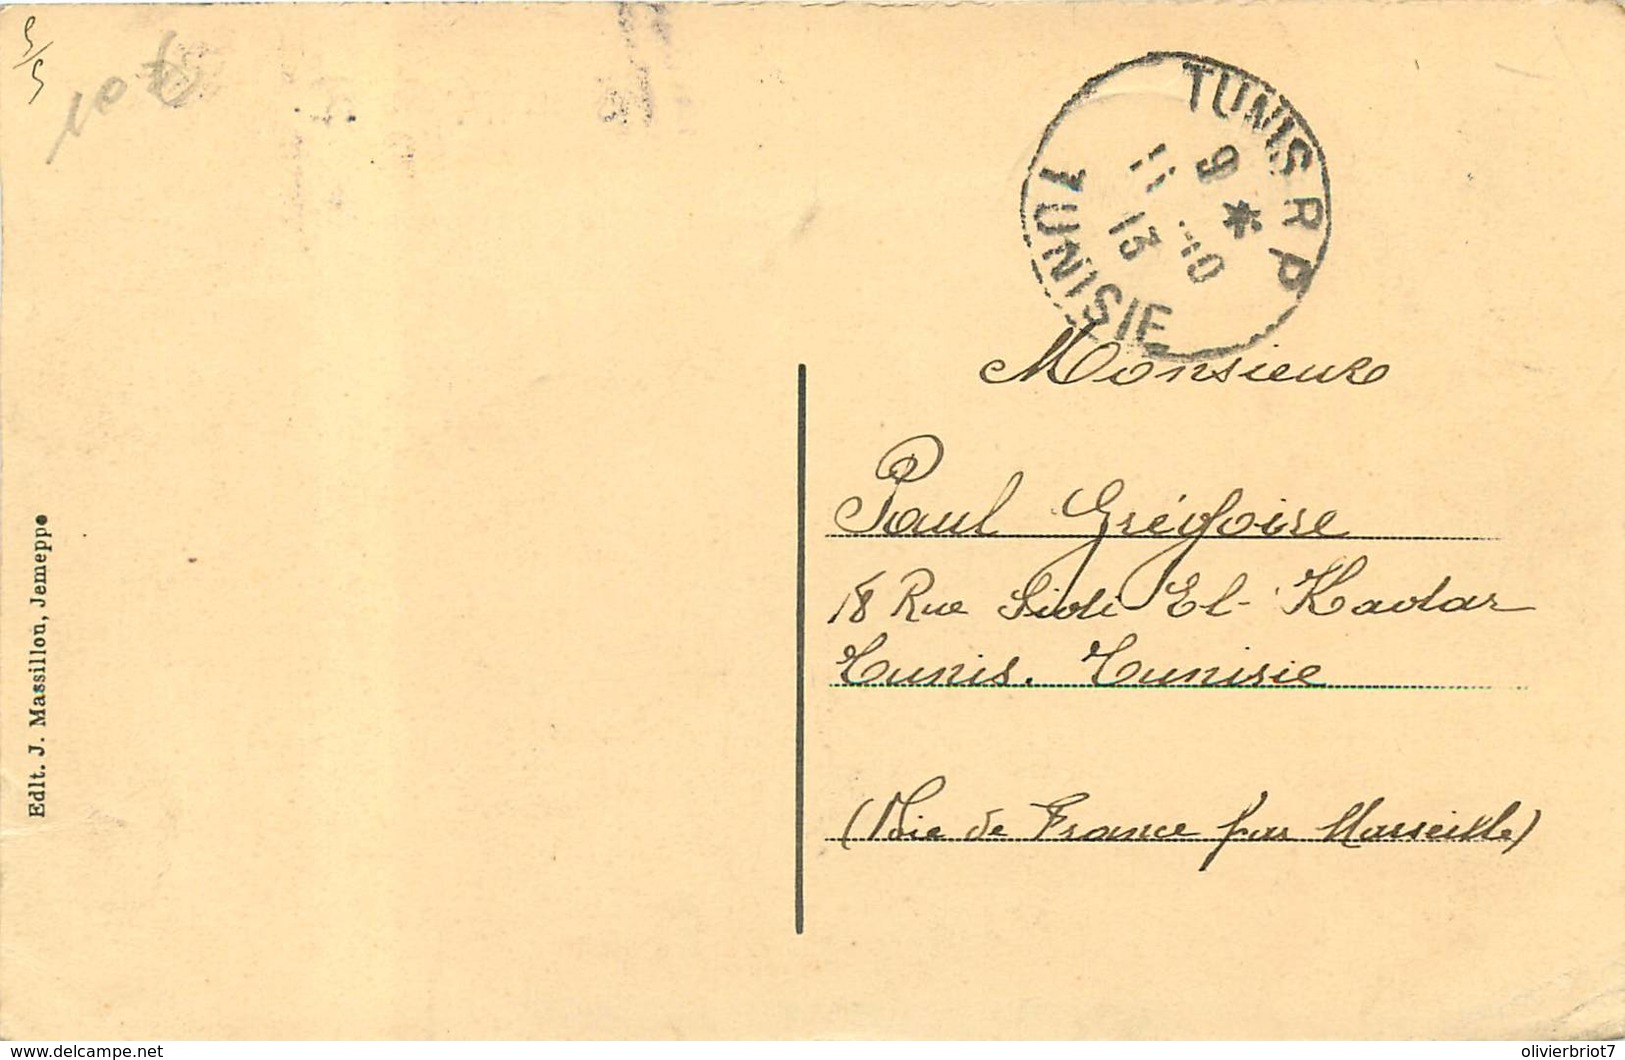 5/5
10 €
TUNIS R P
9 *
11 -10
13
TUNISIE
Monsieur
Paul Grégoire
18 Rue Sidi El-Kadar
Tunis. Tunisie
(Voie de France par Marseille)
Edit. J. Massillou, Jemeppe
delcampe.net
olivierbriot7